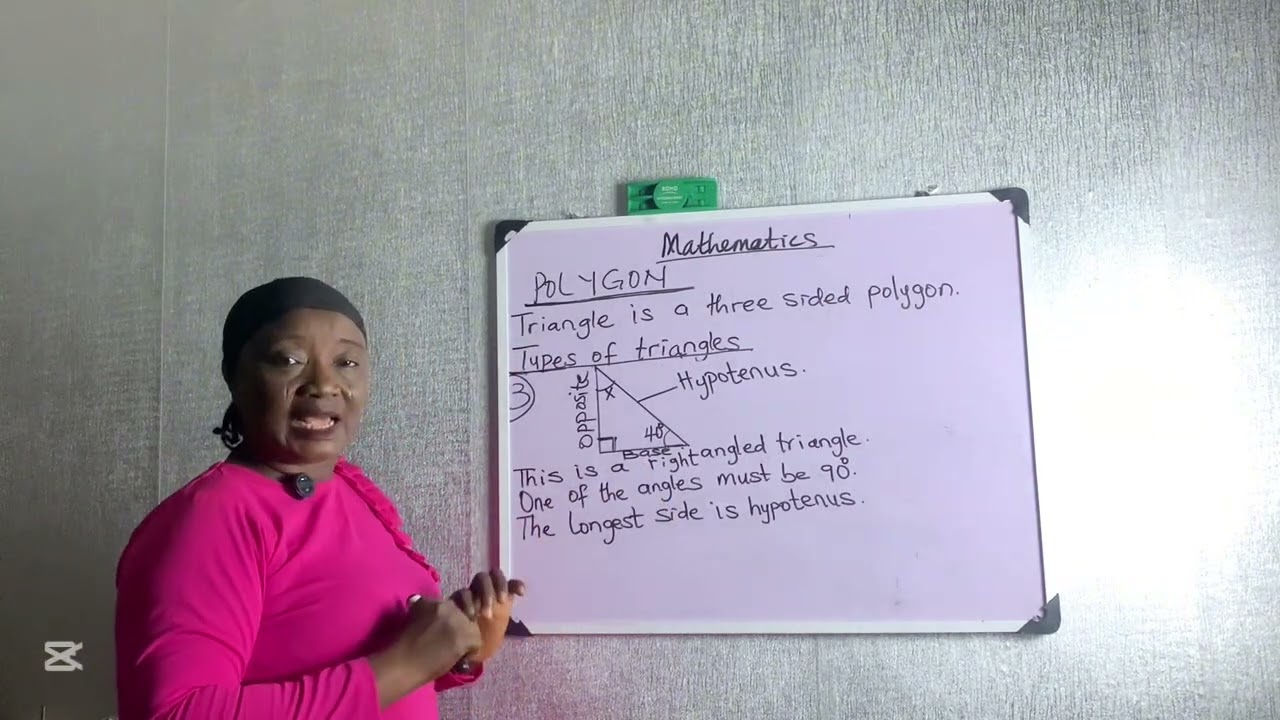 ROHO
Mathematics
POLYGON
Triangle is a three sided polygon.
Types of triangles
3
Opposite
x
Hypotenus.
40°
Base
This is a right angled triangle.
One of the angles must be 90°.
The longest side is hypotenus.